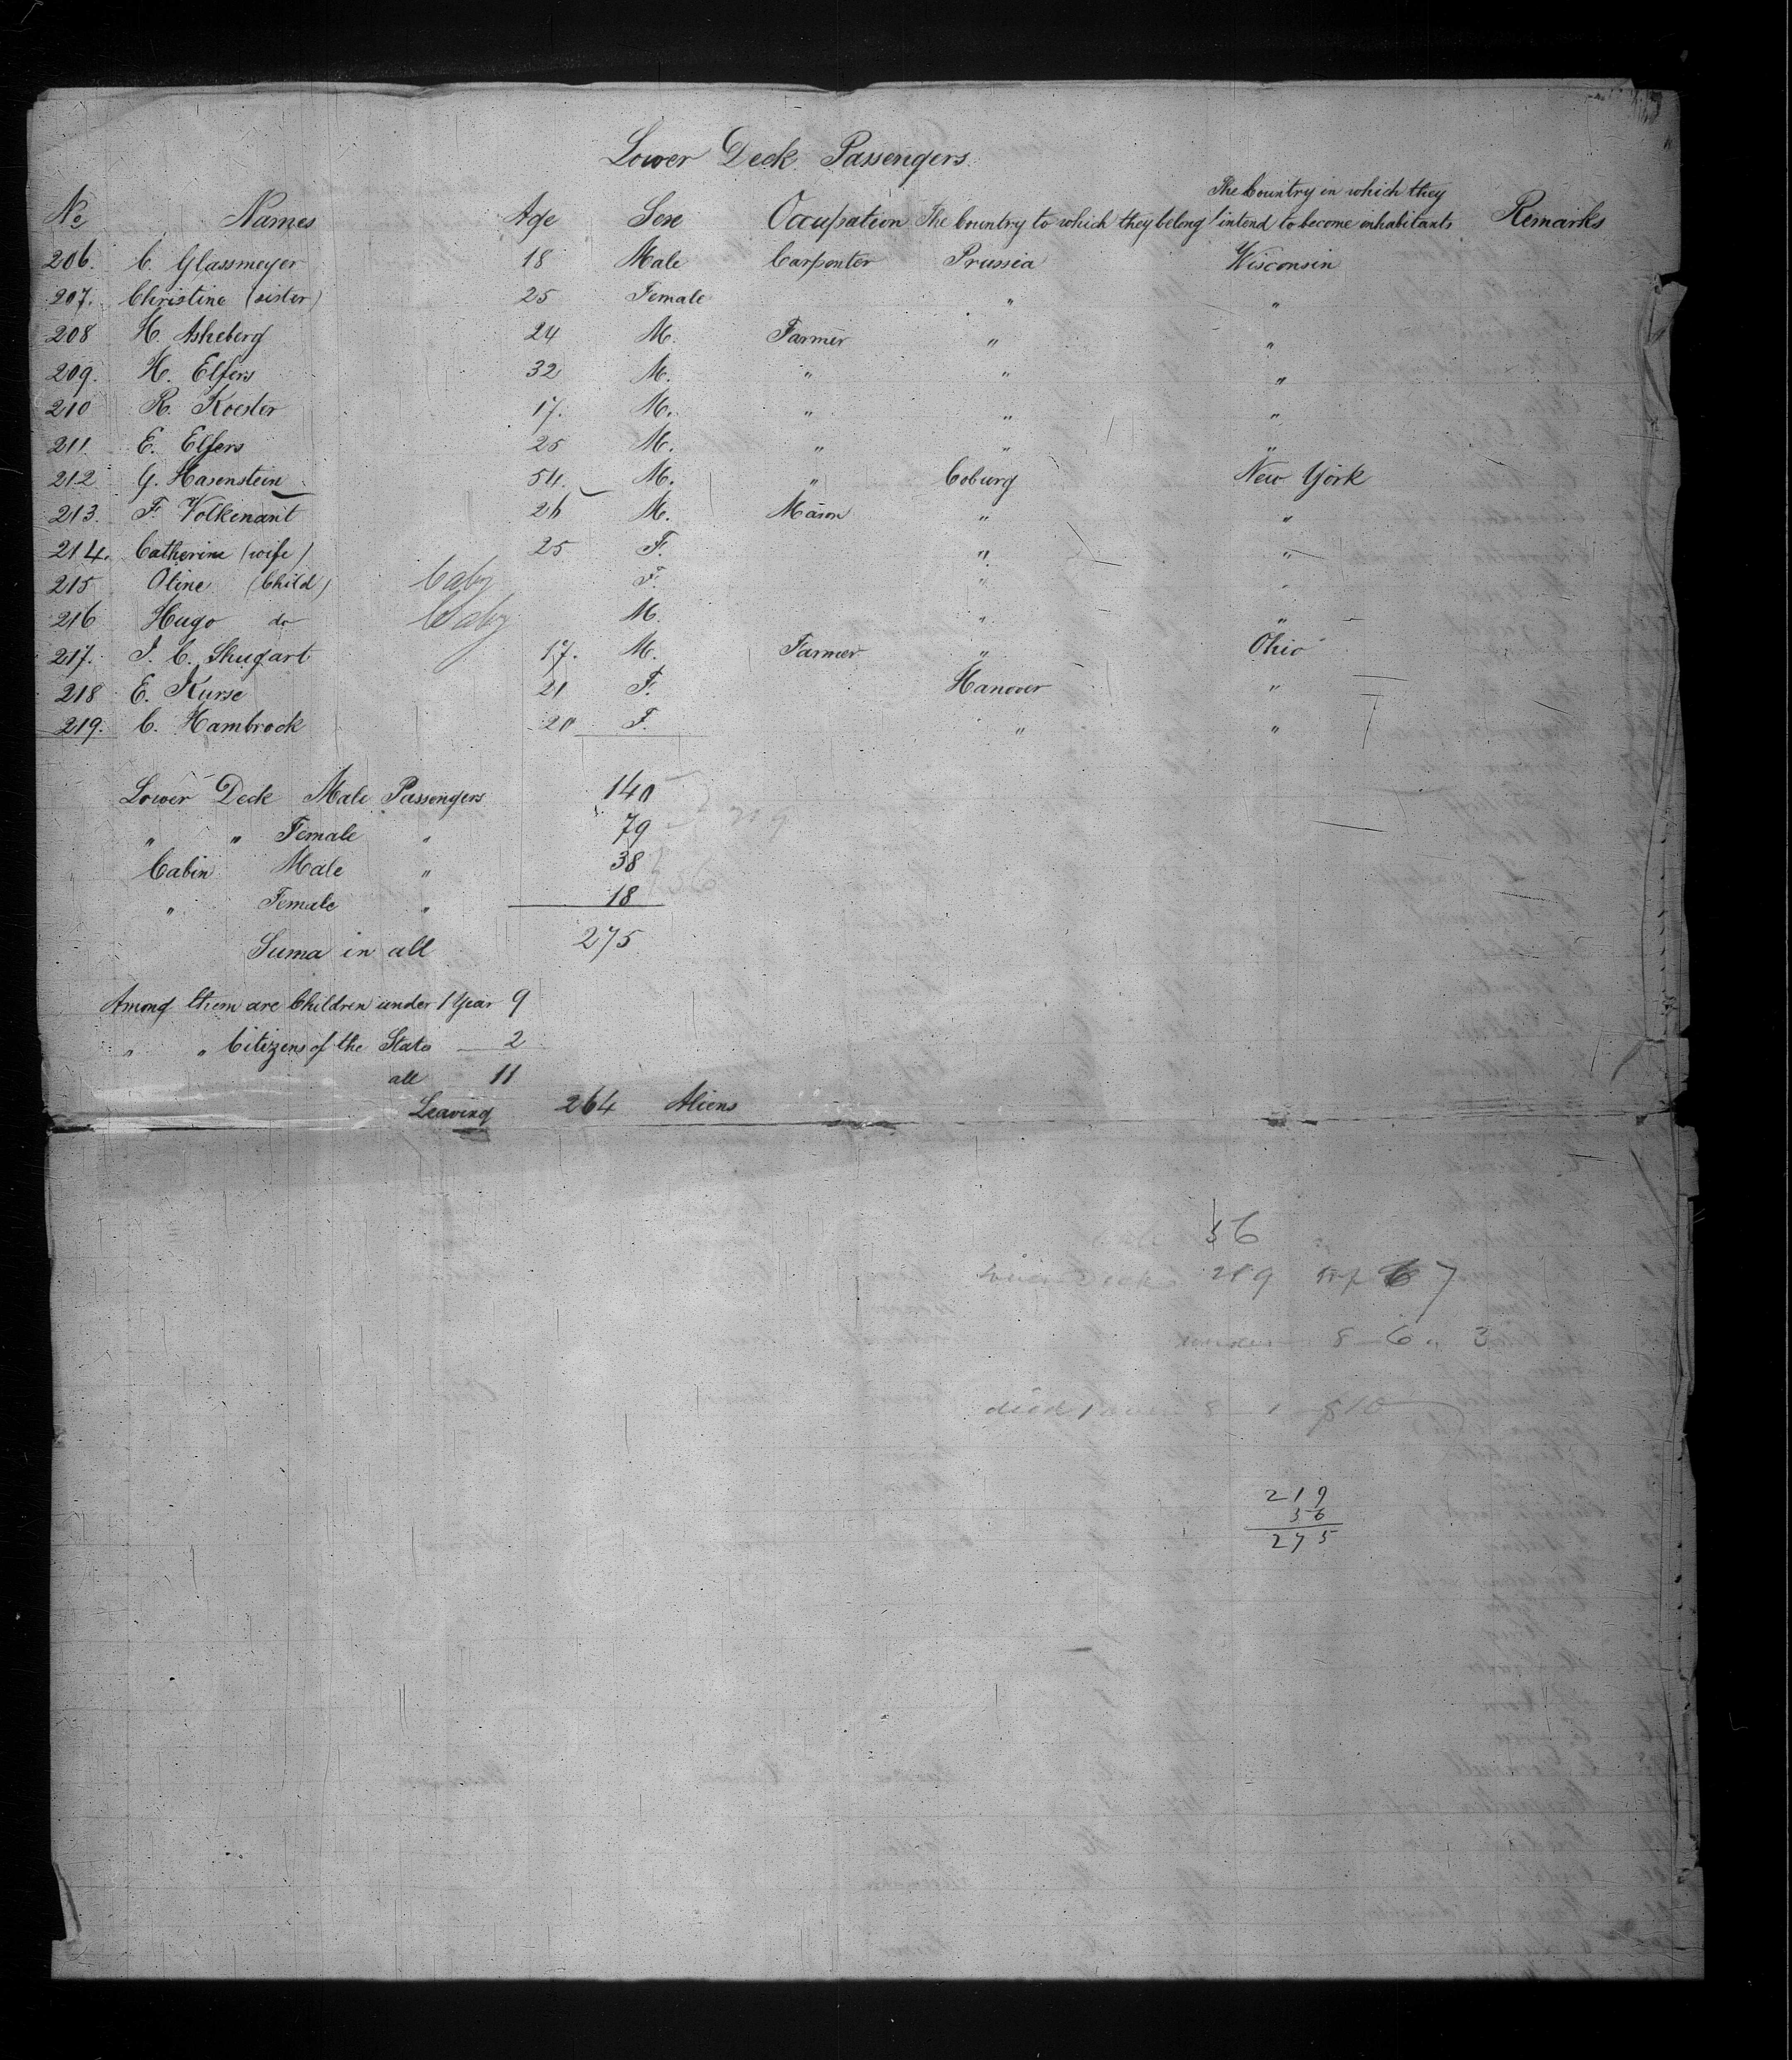 Lower Deck Passengers.
No Names Age Sex Occupation The Country to which they belong The Country in which they intend to become inhabitants Remarks
206. C. Glassmeyer 18 Male Carpenter Prussia Wisconsin
207. Christine (sister) 25 Female " "
208 H. Asheberg 24 M. Farmer " "
209. H. Elfers 32 M. " " "
210 R. Koester 17. M. " " "
211. E. Elfers 25 M. " " "
212 G. Hasenstein 54. M. " Coburg New York
213. F. Volkenant 26 M. Mason " "
214. Catherine (wife) 25 F. " "
215 Oline (Child) baby F. " "
216 Hugo do baby M. " "
217. J. C. Shugart 17. M. Farmer " Ohio
218 E. Kurse 21 F. Hanover "
219. C. Hambrock 20 F. " "
Lower Deck Male Passengers 140
" " Female " 79 219
Cabin Male " 38
" Female " 18 56
Suma in all 275
Among them are Children under 1 Year 9
" " Citizens of the States 2
all 11
Leaving 264 Aliens
56
Lower Deck 219
under 8 - 6 " 3
died 1 over 8 - 1
219
56
275